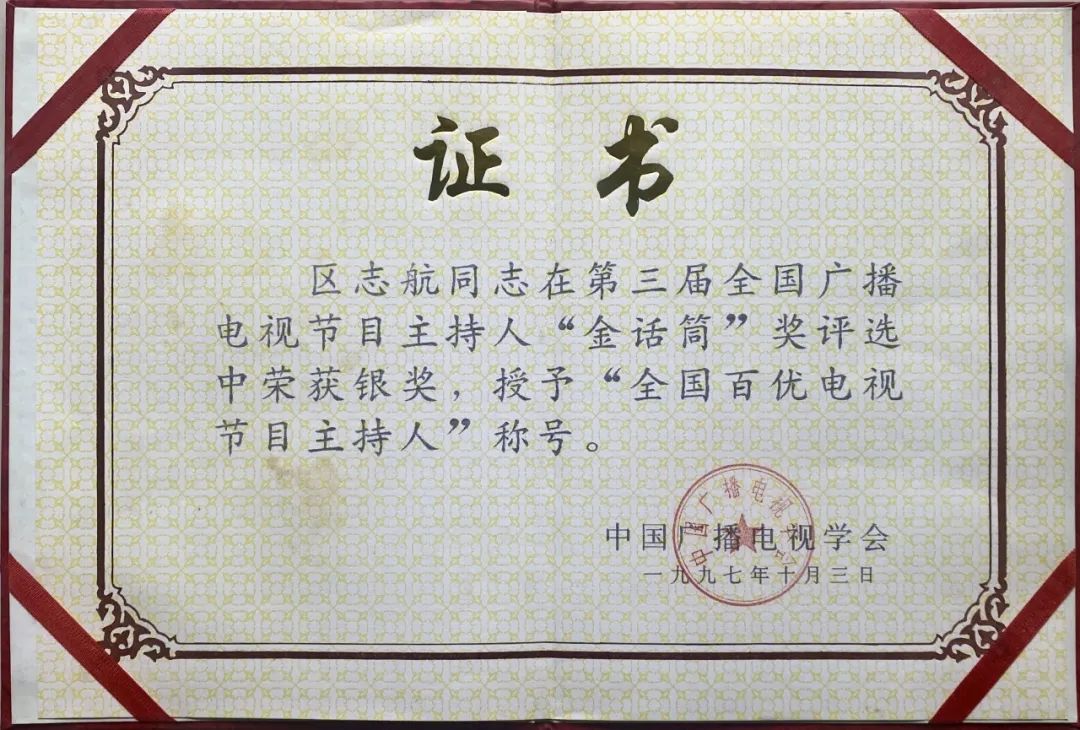 证书
区志航同志在第三届全国广播
电视节目主持人“金话筒”奖评选
中荣获银奖，授予“全国百优电视
节目主持人”称号。
中国广播电视学会
一九九七年十月三日
中国广播电视学会